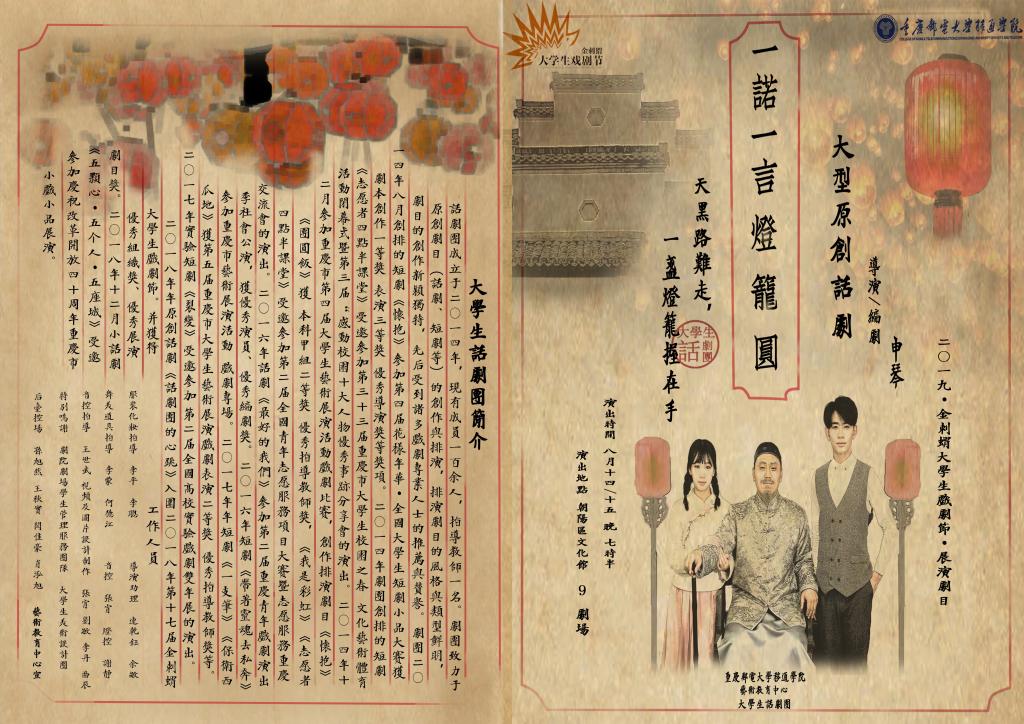 大學生話劇團簡介
話劇團成立于二〇一四年，現有成員一百余人，指導教師一名。劇團致力于
原創劇目（話劇、短劇等）的創作與排演，排演劇目的風格與類型鮮明，
劇目的創作新穎獨特，先后受到諸多戲劇專業人士的推薦與贊譽。劇團二〇
一四年八月創排的短劇《懷抱》參加第四届花樣年華·全國大學生短劇小品大賽獲
劇本創作一等獎、表演三等獎、優秀導演獎等獎項。二〇一四年劇團創排的短劇
《志愿者四點半課堂》受邀參加第三十三届重慶市大學生校園之春 文化藝術體育
活動閉幕式暨第三届"感動校園十大人物優秀事跡分享會的演出。二〇一四年十
二月參加重慶市第四届大學生藝術展演活動戲劇比賽，創作排演劇目《懷抱》
《團圓飯》獲 本科甲組二等獎 優秀指導教師獎，《我是彩虹》《志愿者
四點半課堂》受邀參加第二届全國青年志愿服務項目大賽暨志愿服務重慶
交流會的演出。二〇一六年話劇《最好的我們》參加第二届重慶青年戲劇演出
季社會公演，獲優秀演員、優秀編劇獎。二〇一六年短劇《帶著靈魂去私奔》
參加重慶市藝術展演活動 戲劇專場。二〇一七年年短劇《一支筆》《保衛西
瓜地》獲第五届重慶市大學生藝術展演戲劇表演二等獎 優秀指導教師獎等。
二〇一七年實驗短劇《裂變》受邀參加 第二届全國高校實驗戲劇雙年展的演出。
二〇一八年年原創話劇《話劇團的心跳》入圍二〇一八年第十七届金刺猬
大學生戲劇節。并獲得
優秀組織獎、優秀展演
劇目獎。二〇一八年十二月小話劇
《五顆心·五个人·五座城》受邀
參加慶祝改革開放四十周年重慶市
小戲小品展演。
工作人員
服裝化妝指導 李平 李聰 導演助理 逯乾鈺 余敏
舞美道具指導 李蒙 何德江 音控 張宵 燈控 謝静
音控指導 王世武 視頻及圖片設計制作 張宵 劉敏 李丹
特别鳴謝 劇院劇場學生管理服務團隊 大學生美術設計團
后臺控場 孫旭然 王秋實 閆佳豪 肖泓旭 藝術教育中心室
金刺猬
大学生戏剧节
重慶郵電大學移通學院
一諾一言燈籠圓
大型原創話劇
導演/編劇
申琴
天黑路難走，
一盞燈籠握在手
大學生
話劇團
二〇一九·金刺猬大學生戲劇節·展演劇目
演出時間 八月十四/十五 晚 七時半
演出地點 朝陽區文化館 9 劇場
重慶郵電大學移通學院
藝術教育中心
大學生話劇團